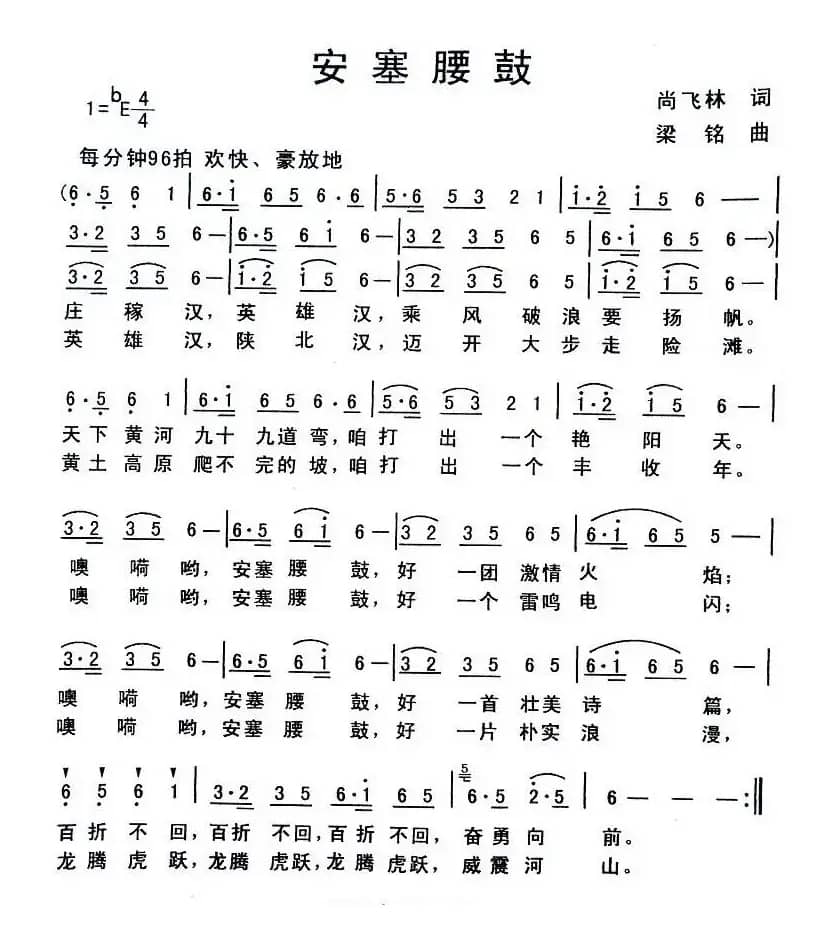 安塞腰鼓
1=ᵇE 4/4
尚飞林 词
梁铭 曲
每分钟96拍 欢快、豪放地
(6·5 6 1 | 6·1 6 5 6·6 | 5·6 5 3 2 1 | 1·2 1 5 6 — — |
3·2 3 5 6 — | 6·5 6 1 6 — | 3 2 3 5 6 5 | 6·1 6 5 6 — )|
3·2 3 5 6 — | 1·2 1 5 6 — | 3 2 3 5 6 5 | 6·1 6 5 6 — |
庄稼汉,英雄汉,乘风破浪要扬帆。
英雄汉,陕北汉,迈开大步走险滩。
6·5 6 1 | 6·1 6 5 6·6 | 5·6 5 3 2 1 | 1·2 1 5 6 — |
天下黄河九十九道弯,咱打出一个艳阳天。
黄土高原爬不完的坡,咱打出一个丰收年。
3·2 3 5 6 — | 6·5 6 1 6 — | 3 2 3 5 6 5 | 6·1 6 5 5 — |
噢嗬哟,安塞腰鼓,好一团激情火焰;
噢嗬哟,安塞腰鼓,好一个雷鸣电闪;
3·2 3 5 6 — | 6·5 6 1 6 — | 3 2 3 5 6 5 | 6·1 6 5 6 — |
噢嗬哟,安塞腰鼓,好一首壮美诗篇,
噢嗬哟,安塞腰鼓,好一片朴实浪漫,
6 5 6 1 | 3·2 3 5 6·1 6 5 | 5 6·5 2·5 | 6 — — — :‖
百折不回,百折不回,百折不回,奋勇向前。
龙腾虎跃,龙腾虎跃,龙腾虎跃,威震河山。